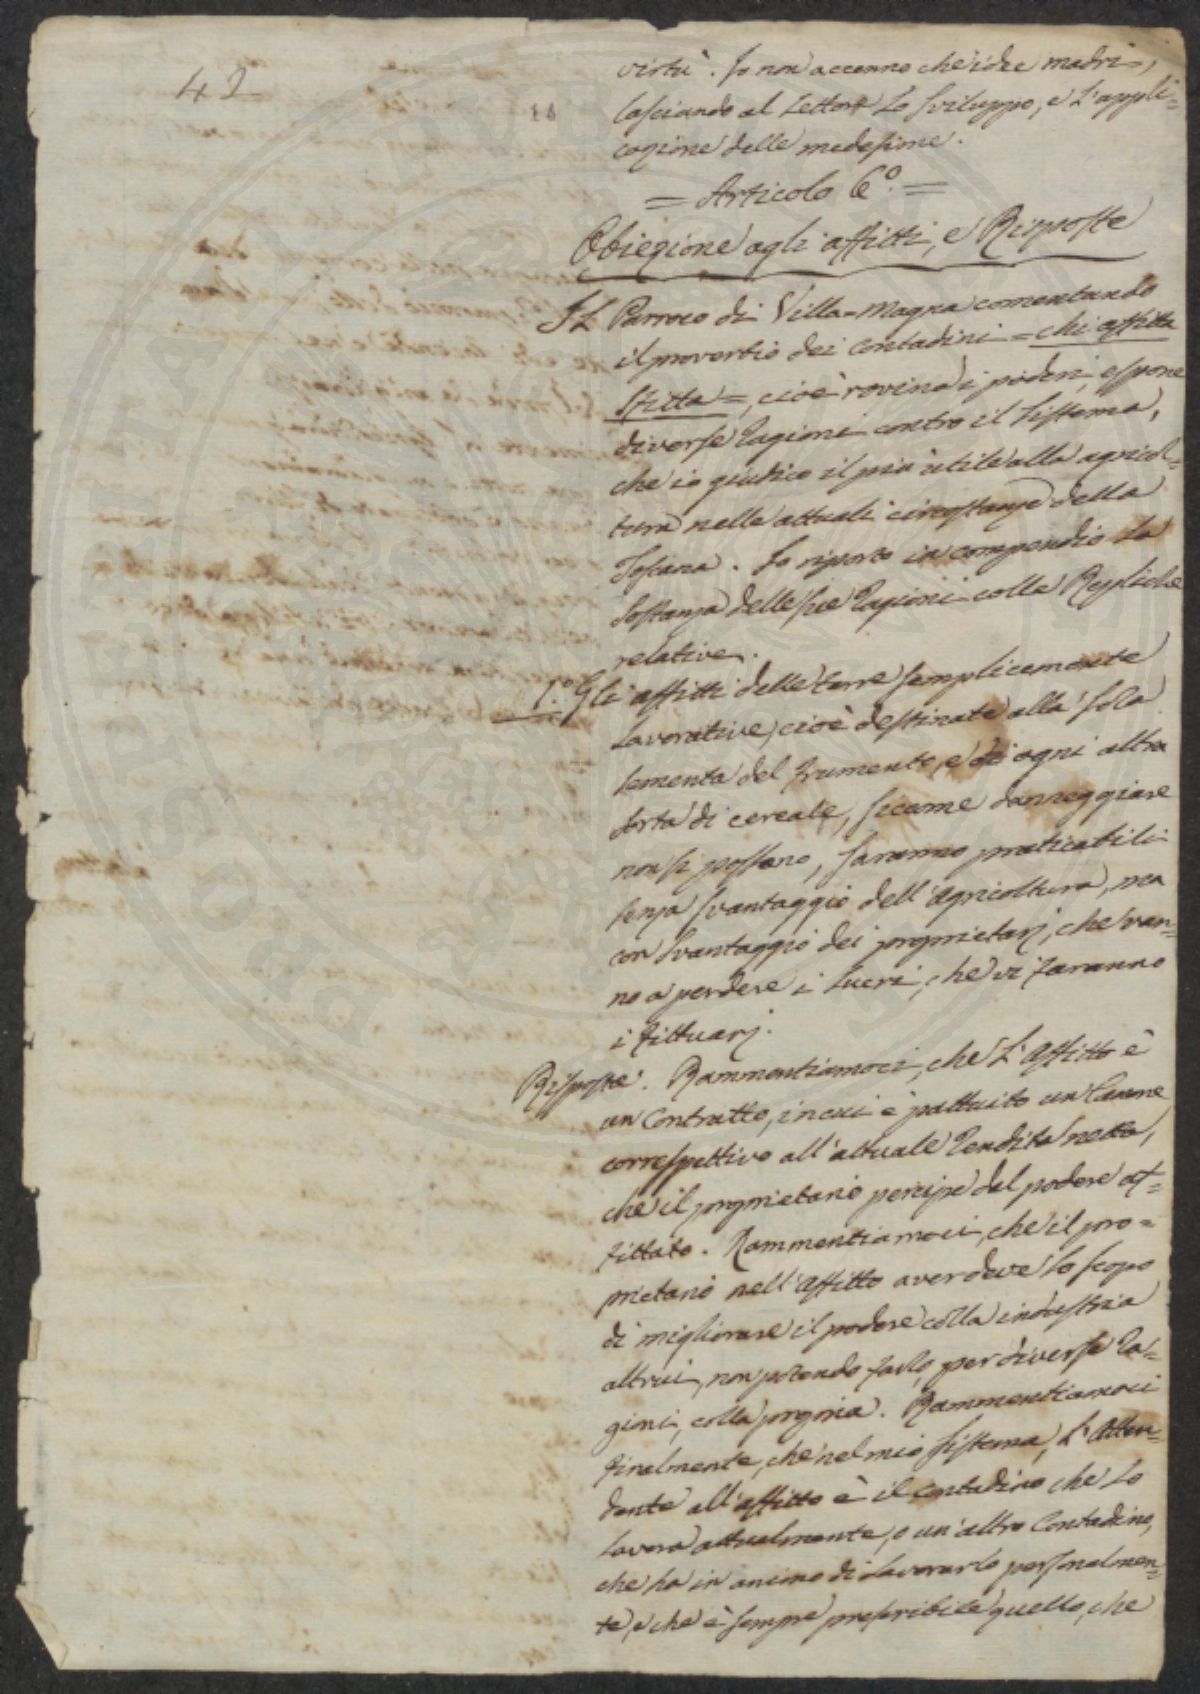 42
virtù. Io non accenno che idee madri,
lasciando al Lettore Lo Sviluppo, e L'appli=
cazione delle medesime.
= Articolo 6.º =
Obiezione agli affitti, e Risposte
IL Parroco di Villa=Magna comentando
il proverbio dei Contadini = chi affitta
Sfitta =, cioè rovina i poderi, espone
diverse Ragioni contro il Sistema,
che io giudico il più utile alla agricol=
tura nelle attuali circostanze della
Toscana. Io riporto in compendio La
Sostanza delle sue Ragioni colle Repliche
relative.
1.º Gli affitti delle terre semplicemente
Lavorative, cioè destinate alla sola
sementa del frumento, e di ogni altra
sorta di cereale, siccome danneggiare
non si possono, saranno praticabili
senza svantaggio dell'agricoltura, ma
con svantaggio dei proprietarj, che van=
no a perdere i Lucri, che vi faranno
i fittuarj.
Risposta. Rammentiamoci, che L'affitto è
un Contratto, in cui è pattuito un Canone
correspettivo all'attuale Rendita netta,
che il proprietario percipe dal podere af=
fittato. Rammentiamoci, che il pro=
prietario nell'affitto aver deve Lo scopo
di migliorare il podere colla industria
altrui, non potendo farlo, per diverse Ra=
gioni, colla propria. Rammentiamoci
finalmente, che nel mio sistema, L'Atten=
dente all'affitto è il contadino che Lo
Lavora attualmente, o un'altro Contadino,
che ha in animo di Lavorarlo personalmen=
te, e che è sempre preferibile quello, che